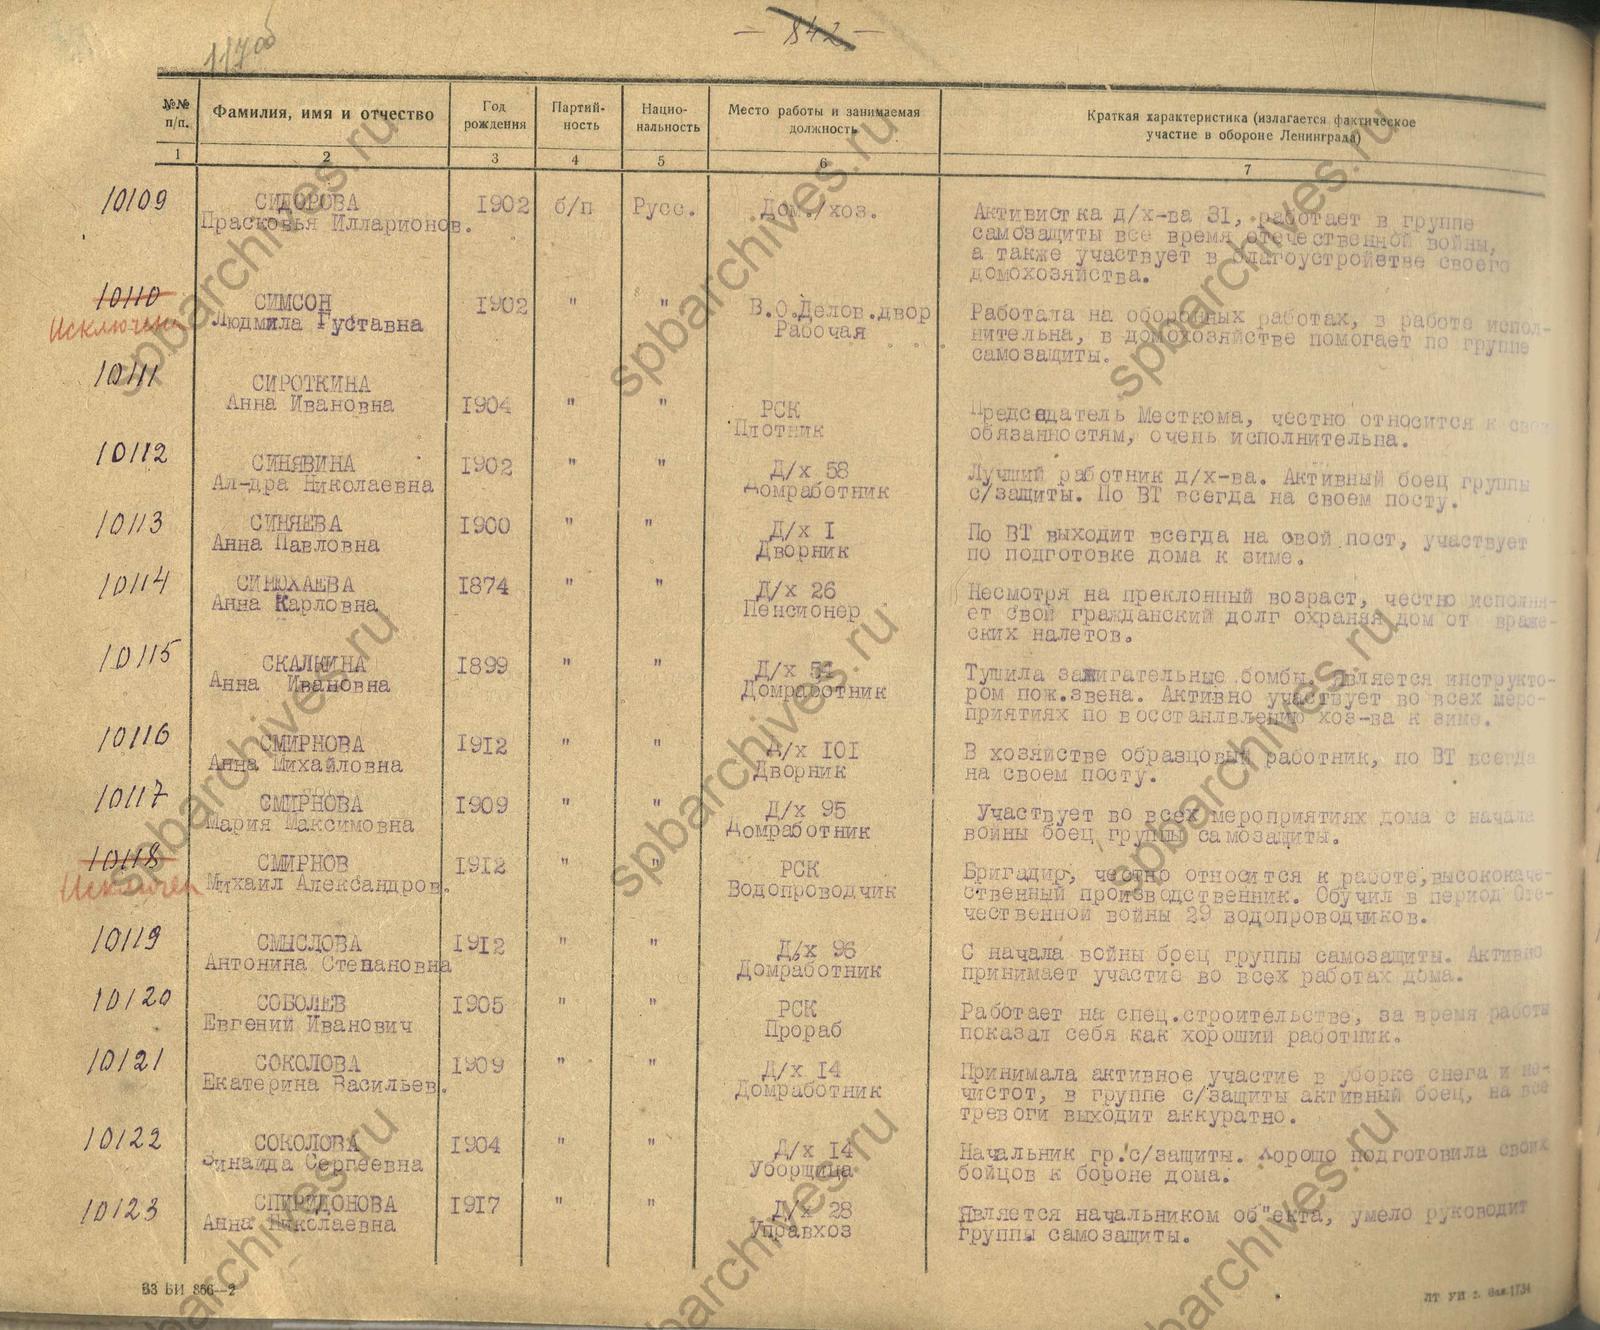 117об
— 842 —
№№ п/п.
Фамилия, имя и отчество
Год рождения
Партий-ность
Нацио-нальность
Место работы и занимаемая должность
Краткая характеристика (излагается фактическое участие в обороне Ленинграда)
1 2 3 4 5 6 7
10109 СИДОРОВА 1902 б/п Русс. Дом./хоз. Активистка д/х-ва 31, работает в группе
Прасковья Илларионов. самозащиты все время отечественной войны,
а также участвует в благоустройстве своего
домохозяйства.
10110 СИМСОН 1902 " " В.О.Делов.двор Работала на оборонных работах, в работе испол-
Исключена Людмила Густавна Рабочая нительна, в домохозяйстве помогает по группе
самозащиты.
10111 СИРОТКИНА
Анна Ивановна 1904 " " РСК Председатель Месткома, честно относится к свои
Плотник обязанностям, очень исполнительна.
10112 СИНЯВИНА 1902 " " Д/х 58 Лучший работник д/х-ва. Активный боец группы
Ал-дра Николаевна Домработник с/защиты. По ВТ всегда на своем посту.
10113 СИНЯЕВА 1900 " " Д/х I По ВТ выходит всегда на свой пост, участвует
Анна Павловна Дворник по подготовке дома к зиме.
10114 СИНЮХАЕВА 1874 " " Д/х 26 Несмотря на преклонный возраст, честно исполня-
Анна Карловна Пенсионер ет свой гражданский долг охраняя дом от враже-
ских налетов.
10115 СКАЛКИНА 1899 " " Д/х 51 Тушила зажигательные бомбы. Является инструкто-
Анна Ивановна Домработник ром пож.звена. Активно участвует во всех меро-
приятиях по восстанлвлению хоз-ва к зиме.
10116 СМИРНОВА 1912 " " Д/х 101 В хозяйстве образцовый работник, по ВТ всегда
Анна Михайловна Дворник на своем посту.
10117 СМИРНОВА 1909 " " Д/х 95 Участвует во всех мероприятиях дома с начала
Мария Максимовна Домработник войны боец группы самозащиты.
10118 СМИРНОВ 1912 " " РСК Бригадир, честно относится к работе,высококаче-
Исключен Михаил Александров. Водопроводчик ственный производственник. Обучил в период Оте-
чественной войны 29 водопроводчиков.
10119 СМЫСЛОВА 1912 " " Д/х 96 С начала войны боец группы самозащиты. Активно
Антонина Степановна Домработник принимает участие во всех работах дома.
10120 СОБОЛЕВ 1905 " " РСК Работает на спец.строительстве, за время работы
Евгений Иванович Прораб показал себя как хороший работник.
10121 СОКОЛОВА 1909 " " Д/х 14 Принимала активное участие в уборке снега и не-
Екатерина Васильев. Домработник чистот, в группе с/защиты активный боец, на все
тревоги выходит аккуратно.
10122 СОКОЛОВА 1904 " " Д/х 14 Начальник гр.с/защиты. Хорошо подготовила своих
Зинаида Сергеевна Уборщица бойцов к бороне дома.
10123 СПИРИДОНОВА 1917 " " Д/х 28 Является начальником об"екта, умело руководит
Анна Николаевна Управхоз группы самозащиты.
ВЗ БИ 866—2
ЛТ УИ
spbarchives.ru
spbarchives.ru
spbarchives.ru
spbarchives.ru
spbarchives.ru
spbarchives.ru
spbarchives.ru
spbarchives.ru
spbarchives.ru